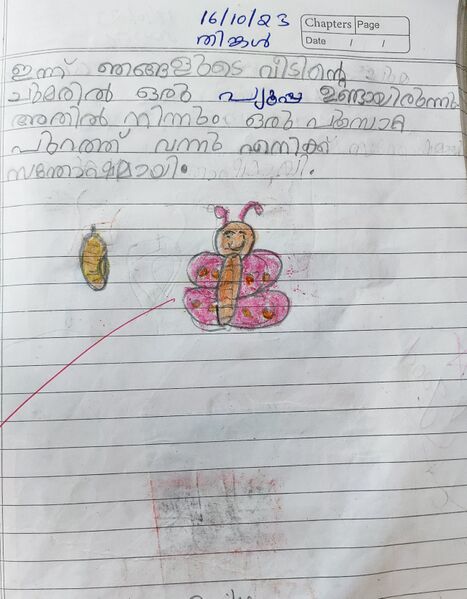 16/10/23
തിങ്കൾ
Chapters Page
Date / /
ഇന്ന് ഞങ്ങളുടെ വീടിന്റെ
ചുമരിൽ ഒരു പ്യൂപ്പ ഉണ്ടായിരുന്നു
അതിൽ നിന്നും ഒരു പൂമ്പാറ്റ
പുറത്ത് വന്നു എനിക്ക്
സന്തോഷമായി.